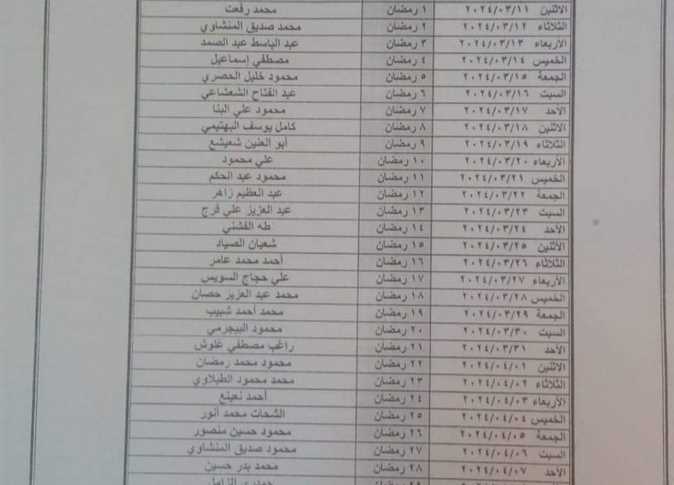 الاثنين ٢٠٢٤/٠٣/١١ ١ رمضان محمد رفعت
الثلاثاء ٢٠٢٤/٠٣/١٢ ٢ رمضان محمد صديق المنشاوي
الأربعاء ٢٠٢٤/٠٣/١٣ ٣ رمضان عبد الباسط عبد الصمد
الخميس ٢٠٢٤/٠٣/١٤ ٤ رمضان مصطفي إسماعيل
الجمعة ٢٠٢٤/٠٣/١٥ ٥ رمضان محمود خليل الحصري
السبت ٢٠٢٤/٠٣/١٦ ٦ رمضان عبد الفتاح الشعشاعي
الأحد ٢٠٢٤/٠٣/١٧ ٧ رمضان محمود علي البنا
الاثنين ٢٠٢٤/٠٣/١٨ ٨ رمضان كامل يوسف البهتيمي
الثلاثاء ٢٠٢٤/٠٣/١٩ ٩ رمضان أبو العنين شعيشع
الأربعاء ٢٠٢٤/٠٣/٢٠ ١٠ رمضان علي محمود
الخميس ٢٠٢٤/٠٣/٢١ ١١ رمضان محمود عبد الحكم
الجمعة ٢٠٢٤/٠٣/٢٢ ١٢ رمضان عبد العظيم زاهر
السبت ٢٠٢٤/٠٣/٢٣ ١٣ رمضان عبد العزيز علي فرج
الأحد ٢٠٢٤/٠٣/٢٤ ١٤ رمضان طه الفشني
الأثنين ٢٠٢٤/٠٣/٢٥ ١٥ رمضان شعبان الصياد
الثلاثاء ٢٠٢٤/٠٣/٢٦ ١٦ رمضان أحمد محمد عامر
الأربعاء ٢٠٢٤/٠٣/٢٧ ١٧ رمضان علي حجاج السويس
الخميس ٢٠٢٤/٠٣/٢٨ ١٨ رمضان محمد عبد العزيز حصان
الجمعة ٢٠٢٤/٠٣/٢٩ ١٩ رمضان محمد أحمد شبيب
السبت ٢٠٢٤/٠٣/٣٠ ٢٠ رمضان محمود البيجرمي
الأحد ٢٠٢٤/٠٣/٣١ ٢١ رمضان راغب مصطفي غلوش
الأثنين ٢٠٢٤/٠٤/٠١ ٢٢ رمضان محمود محمد رمضان
الثلاثاء ٢٠٢٤/٠٤/٠٢ ٢٣ رمضان محمد محمود الطبلاوي
الأربعاء ٢٠٢٤/٠٤/٠٣ ٢٤ رمضان أحمد نعينع
الخميس ٢٠٢٤/٠٤/٠٤ ٢٥ رمضان الشحات محمد أنور
الجمعة ٢٠٢٤/٠٤/٠٥ ٢٦ رمضان محمود حسين منصور
السبت ٢٠٢٤/٠٤/٠٦ ٢٧ رمضان محمود صديق المنشاوي
الأحد ٢٠٢٤/٠٤/٠٧ ٢٨ رمضان محمد بدر حسين